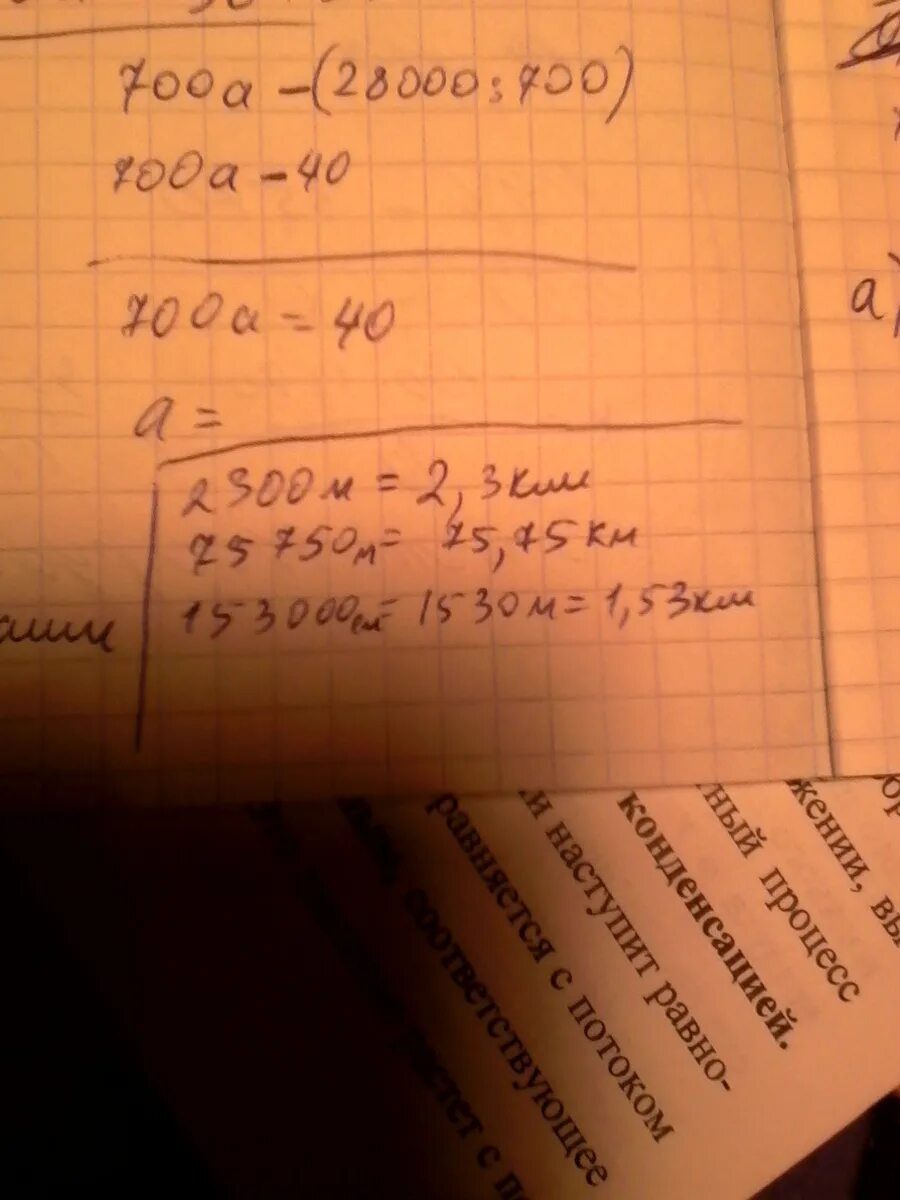 700а - (28000 : 700)
700а - 40
700а = 40
а =
2300м = 2,3км
75 750м = 75,75км
153000см = 1530м = 1,53км
а)
жении, вы
ный процесс
конденсацией.
и наступит равно-
равняется с потоком
соответствующее
растет с